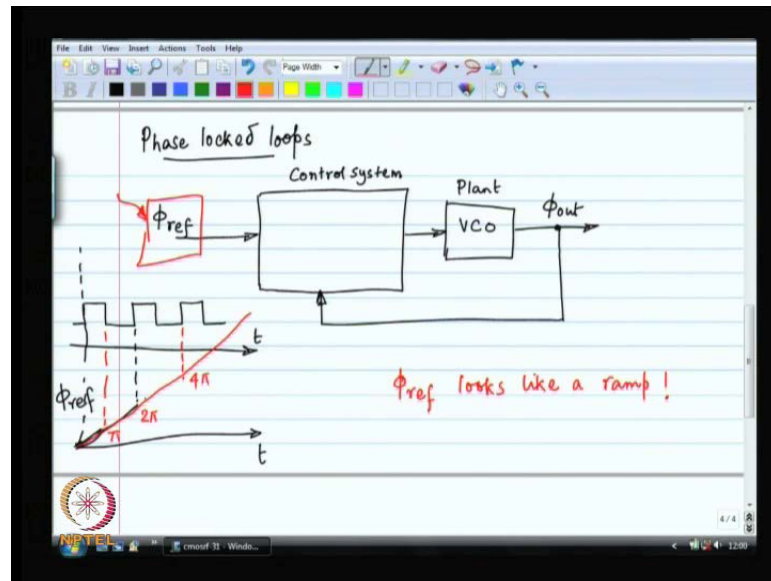 File Edit View Insert Actions Tools Help
Page Width
B I
Phase locked loops
Control system
Plant
Φref
VCO
Φout
t
Φref
π
2π
4π
t
Φref looks like a ramp!
4/4
NPTEL
cmosrf-31 - Windo...
12:00